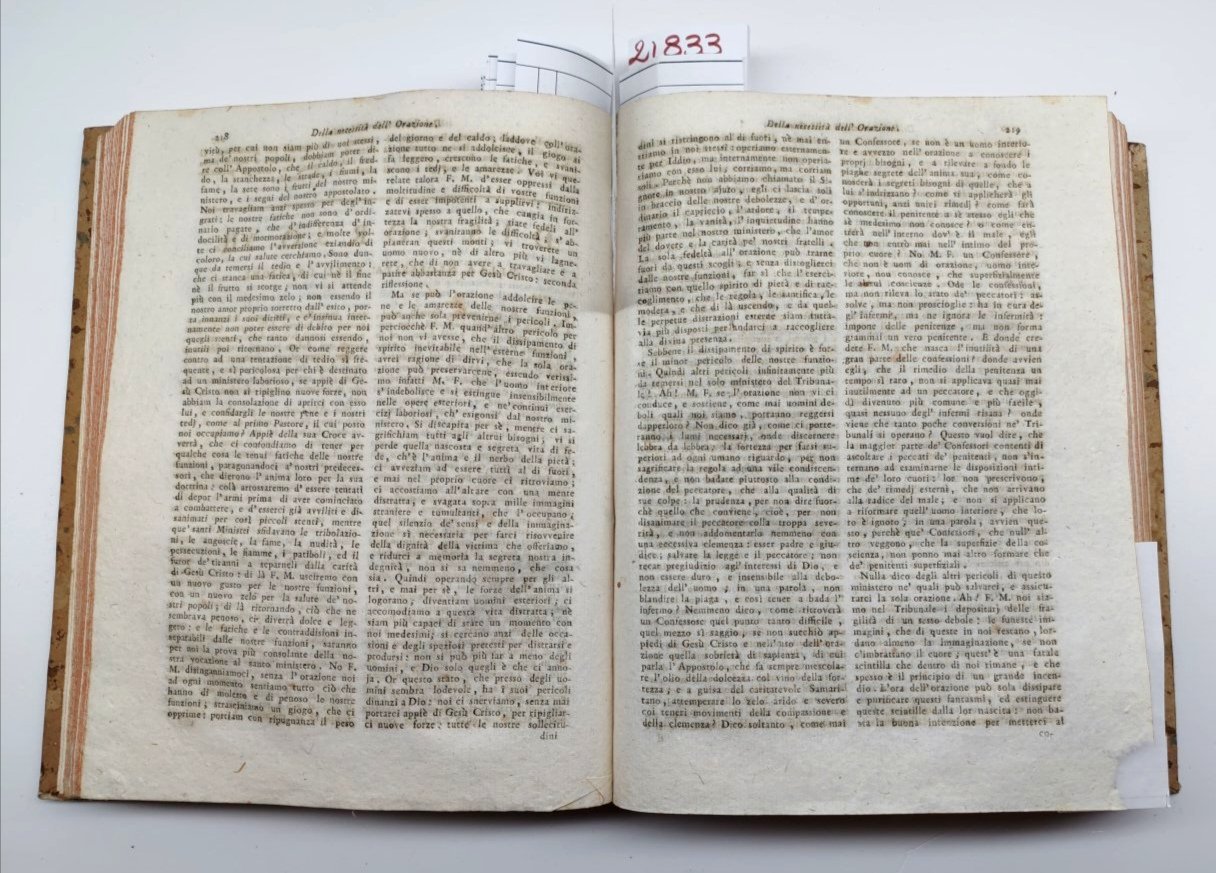 21833
218
Della necessità dell' Orazione.
vità, per cui non siam più di noi stessi,
ma de' nostri popoli, dobbiam poter di-
re coll' Appostolo, che il caldo, il fred-
do, la stanchezza, le strade, i fiumi, la
fame, la sete sono i frutti del nostro mi-
nistero, e i segni del nostro appostolato.
Noi travagliam anzi spesso per degl' in-
grati: le nostre fatiche non sono d' ordi-
nario pagate, che d' indifferenza, d' in-
docilità e di mormorazione; e molte vol-
te ci conciliamo l' avversione eziandio di
coloro, la cui salute cerchiamo. Sono dun-
que da temersi il tedio e l' avvilimento:
che si stanca una fatica, di cui nè il fine
nè il frutto si scorge; non vi si attende
più con il medesimo zelo; non essendo il
nostro amor proprio sorretto dall' esito, por-
ta innanzi i suoi diritti, e c' insinua inter-
namente non poter essere di debito per noi
quegli stenti, che tanto dannosi essendo,
inutili poi ritornano. Or come reggere
contro ad una tentazione di tedio sì fre-
quente, e sì pericolosa per chi è destinato
ad un ministero laborioso, se appiè di Ge-
sù Cristo non si ripiglino nuove forze, non
abbiam la consolazione di aprirci con esso
lui, e confidargli le nostre pene e i nostri
tedj, come al primo Pastore, il cui posto
noi occupiamo? Appiè della sua Croce avver-
rà, che ci confondiamo di tener per
qualche cosa le tenui fatiche delle nostre
funzioni, paragonandoci a' nostri predeces-
sori, che dierono l' anima loro per la sua
dottrina: colà arrossaremo d' essere tentati
di depor l' armi prima di aver cominciato
a combattere, e d' esserci già avviliti e di-
sanimati per così piccoli stenti, mentre
que' santi Ministri sfidavano le tribolazio-
ni, le angoscie, la fame, la nudità, le
persecuzioni, le fiamme, i patiboli, ed il
furor de' tiranni a separarli dalla carità
di Gesù Cristo: di là F. M. usciremo con
un nuovo gusto per le nostre funzioni,
con un nuovo zelo per la salute de' no-
stri popoli; di là ritornando, ciò che ne
sembrava penoso, ci diverrà dolce e leg-
gero: e le fatiche e le contraddizioni in-
separabili dalle nostre funzioni, saranno
per noi la prova più consolante della no-
stra vocazione al santo ministero. No F.
M. disinganniamoci, senza l' orazione noi
ad ogni momento sentiamo tutto ciò che
hanno di molesto e di penoso le nostre
funzioni; strasciniamo un giogo, che ci
opprime: portiam con ripugnanza il peso
del giorno e del caldo; laddove coll' ora-
zione tutto ne si addolcisce, il giogo si
fa leggero, crescono le fatiche, e svani-
scono i tedj, e le amarezze. Voi vi que-
relate talora F. M. d' esser oppressi dalla
moltitudine e difficoltà di vostre funzioni
e di esser impotenti a supplirvi: indiriz-
zatevi spesso a quello, che cangia in for-
tezza la nostra fragilità; siate fedeli all'
orazione; svaniranno le difficoltà; s' ab-
pianeran questi monti; vi troverete un
uomo nuovo, nè di altro più vi lagne-
rete, che di non avere a travagliare e a
patire abbastanza per Gesù Cristo: seconda
riflessione.
Ma se può l' orazione addolcire le pe-
ne e le amarezze delle nostre funzioni,
può anche sola prevenirne i pericoli. Im-
perciocchè F. M. quand' altro pericolo per
noi non vi avesse, che il dissipamento di
spirito inevitabile nell' esterne funzioni,
avrei ragione di dirvi, che la sola ora-
zione può preservarcene, essendo verissi-
mo infatti M. F. che l' uomo interiore
s' indebolisce e si estingue insensibilmente
nelle opere esteriori, e ne' continui eser-
cizj laboriosi, ch' esigonsi dal nostro mi-
nistero. Si discapita per sè, mentre ci sa-
grifichiam tutti agli altrui bisogni; vi si
perde quella nascosta e segreta vita di fe-
de, ch' è l' anima e il nerbo della pietà;
ci avvezzam ad essere tutti al di fuori,
e mai nel proprio cuore ci ritroviamo;
ci accostiamo all' altare con una mente
distratta, e svagata sopra mille immagini
straniere e tumultuanti, che l' occupano;
quel silenzio de' sensi e della immagina-
zione sì necessaria per farci risovvenire
della dignità della vittima che offeriamo,
e ridurci a memoria la segreta nostra in-
degnità, non si sa nemmeno, che cosa
sia. Quindi operando sempre per gli al-
tri, e mai per sè, le forze dell' anima si
logorano; diventiam uomini esteriori; ci
accomodiamo a questa vita distratta; nè
siam più capaci di stare un momento con
noi medesimi; si cercano anzi delle occa-
sioni e degli speziosi pretesti per distrarsi e
produrci: non si può più far a meno degli
uomini, e Dio solo quegli è che ci anno-
ja. Or questo stato, che presso degli uo-
mini sembra lodevole, ha i suoi pericoli
dinanzi a Dio: noi ci snerviamo, senza mai
portarci appiè di Gesù Cristo, per ripigliar-
ci nuove forze: tutte le nostre sollecitu-
dini
Della necessità dell' Orazione.
219
dini si ristringono al di fuori, nè mai en-
triamo in noi stessi: operiamo esternamen-
te per Iddio, ma internamente non operia-
mo con esso lui; corriamo, ma corriam
soli. Perchè non abbiamo chiamato il Si-
gnore in nostro ajuto, egli ci lascia solo
in braccio delle nostre debolezze, e d' or-
dinario il capriccio, l' ardore, il tempe-
ramento, la vanità, l' inquietudine hanno
più parte nel nostro ministero, che l' amor
del dovere e la carità pe' nostri fratelli.
La sola fedeltà all' orazione può trarne
fuori da questi scogli: e senza distoglierci
dalle nostre funzioni, far sì che l' eserci-
ziam con quello spirito di pietà e di rac-
coglimento, che le regola, le santifica, le
modera, e che di là uscendo, e da quel-
le perpetue distrazioni esterne siam tutta-
via più disposti per andarci a raccogliere
alla divina presenza.
Sebbene il dissipamento di spirito è for-
se il minor pericolo delle nostre funzio-
ni. Quindi altri pericoli infinitamente più
da temersi nel solo ministero del Tribuna-
le! Ah! M. F. se l' orazione non vi ci
conduce, e sostiene, come mai uomini de-
boli quali noi siamo, potranno reggersi
dapperloro? Non dico già, come ci porte-
ranno i lumi necessarj, onde discernere
lebbra da lebbra; la fortezza per farsi su-
periori ad ogni umano riguardo, per non
sagrificare la regola ad una vile condiscen-
denza, e non badare piuttosto alla condi-
zione del peccatore, che alla qualità di
sue colpe: la prudenza, per non dire fuor-
chè quello che conviene, cioè, per non
disanimare il peccatore colla troppa seve-
rità, e non addormentarlo nemmeno con
una eccessiva clemenza: esser padre e giu-
dice; salvare la legge e il peccatore; non
recar pregiudizio agl' interessi di Dio, e
non essere duro, e insensibile alla debo-
lezza dell' uomo; in una parola, non
blandire la piaga, e così tener a bada l'
infermo? Nemmeno dico, come ritroverà
un Confessore quel punto tanto difficile,
quel mezzo sì saggio, se non succhiò ap-
piedi di Gesù Cristo e nell' uso dell' ora-
zione quella sobrietà di sapienza, di cui
parla l' Appostolo, che fa sempre mescola-
re l' olio della dolcezza col vino della for-
tezza; e a guisa del caritatevole Samari-
tano, attemperare lo zelo arido e severo
coi teneri movimenti della compassione e
della clemenza? Dico soltanto, come mai
un Confessore, se non è un uomo interio-
re e avvezzo nell' orazione a conoscere i
proprj bisogni, e a rilevare a fondo le
piaghe segrete dell' anima sua, come co-
noscerà i segreti bisogni di quelle, che a
lui s' indirizzano: come si applicherà gli
opportuni, anzi unici rimedj: come farà
conoscere il penitente a sè stesso egli che
sè medesimo non conosce? o come en-
trerà nell' interno dov' è il male, egli
che non entrò mai nell' intimo del pro-
prio cuore? No M. F. un Confessore,
che non è uom di orazione, uomo inte-
riore, non conosce, che superfizialmente
le altrui coscienze. Ode le confessioni,
ma non rileva lo stato de' peccatori: as-
solve, ma non proscioglie: ha in cura de-
gl' infermi, ma ne ignora le infermità:
impone delle penitenze, ma non forma
giammai un vero penitente. E donde cre-
dete F. M. che nasca l' inutilità di una
gran parte delle confessioni? donde avvien
egli, che il rimedio della penitenza un
tempo sì raro, non si applicava quasi mai
inutilmente ad un peccatore, e che oggi-
dì divenuto più comune e più facile,
quasi nessuno degl' infermi risana? onde
viene che tanto poche conversioni ne' Tri-
bunali si operano? Questo vuol dire, che
la maggior parte de' Confessori contenti di
ascoltare i peccati de' penitenti, non s' in-
ternano ad esaminarne le disposizioni inti-
me de' loro cuori: lor non prescrivono,
che de' rimedj esterni, che non arrivano
alla radice del male, e non si applicano
a riformare quell' uomo interiore, che lo-
ro è ignoto; in una parola, avvien que-
sto, perchè que' Confessori, che null' al-
tro veggono, che la superfizie della co-
scienza, non ponno mai altro formare che
de' penitenti superfiziali.
Nulla dico degli altri pericoli di questo
ministero ne' quali può salvarci, e assicu-
rarci la sola orazione. Ah! F. M. noi siz-
mo nel Tribunale i depositarj delle fra-
gilità di un sesso debole: le funeste im-
magini, che di queste in noi restano, lor-
dano almeno la immaginazione, se non
c' imbrattano il cuore; quest' è una fatale
scintilla che dentro di noi rimane, e che
spesso è il principio di un grande incen-
dio. L' ora dell' orazione può sola dissipare
e purificare questi fantasmi, ed estinguere
queste scintille dalla lor nascita: non ba-
sta la buona intenzione per metterci al
co-